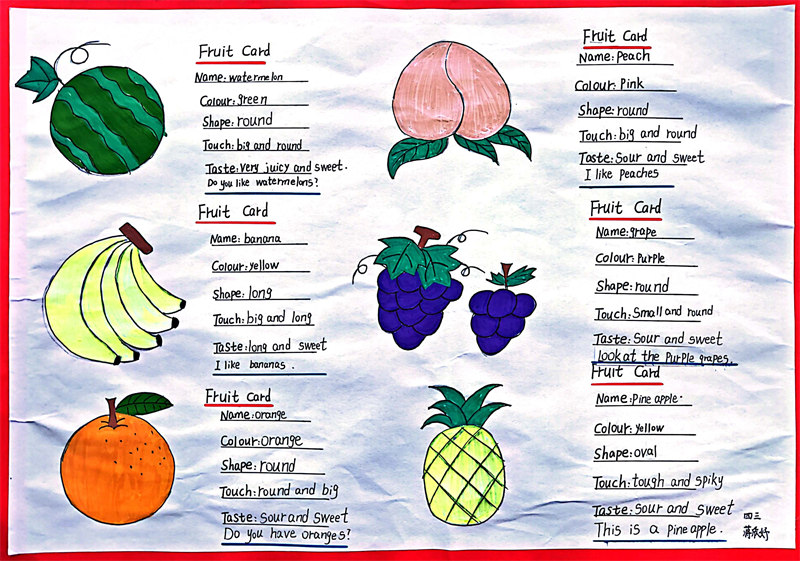 Fruit Card
Name: watermelon
Colour: green
Shape: round
Touch: big and round
Taste: Very juicy and sweet.
Do you like watermelons?
Fruit Card
Name: Peach
Colour: Pink
Shape: round
Touch: big and round
Taste: Sour and sweet
I like Peaches
Fruit Card
Name: banana
Colour: yellow
Shape: long
Touch: big and long
Taste: long and sweet
I like bananas.
Fruit Card
Name: grape
Colour: Purple
Shape: round
Touch: Small and round
Taste: Sour and sweet
look at the Purple grapes.
Fruit Card
Name: orange
Colour: orange
Shape: round
Touch: round and big
Taste: Sour and sweet
Do you have oranges?
Fruit Card
Name: Pine apple.
Colour: yellow
Shape: oval
Touch: tough and spiky
Taste: Sour and sweet
This is a pine apple.
四三